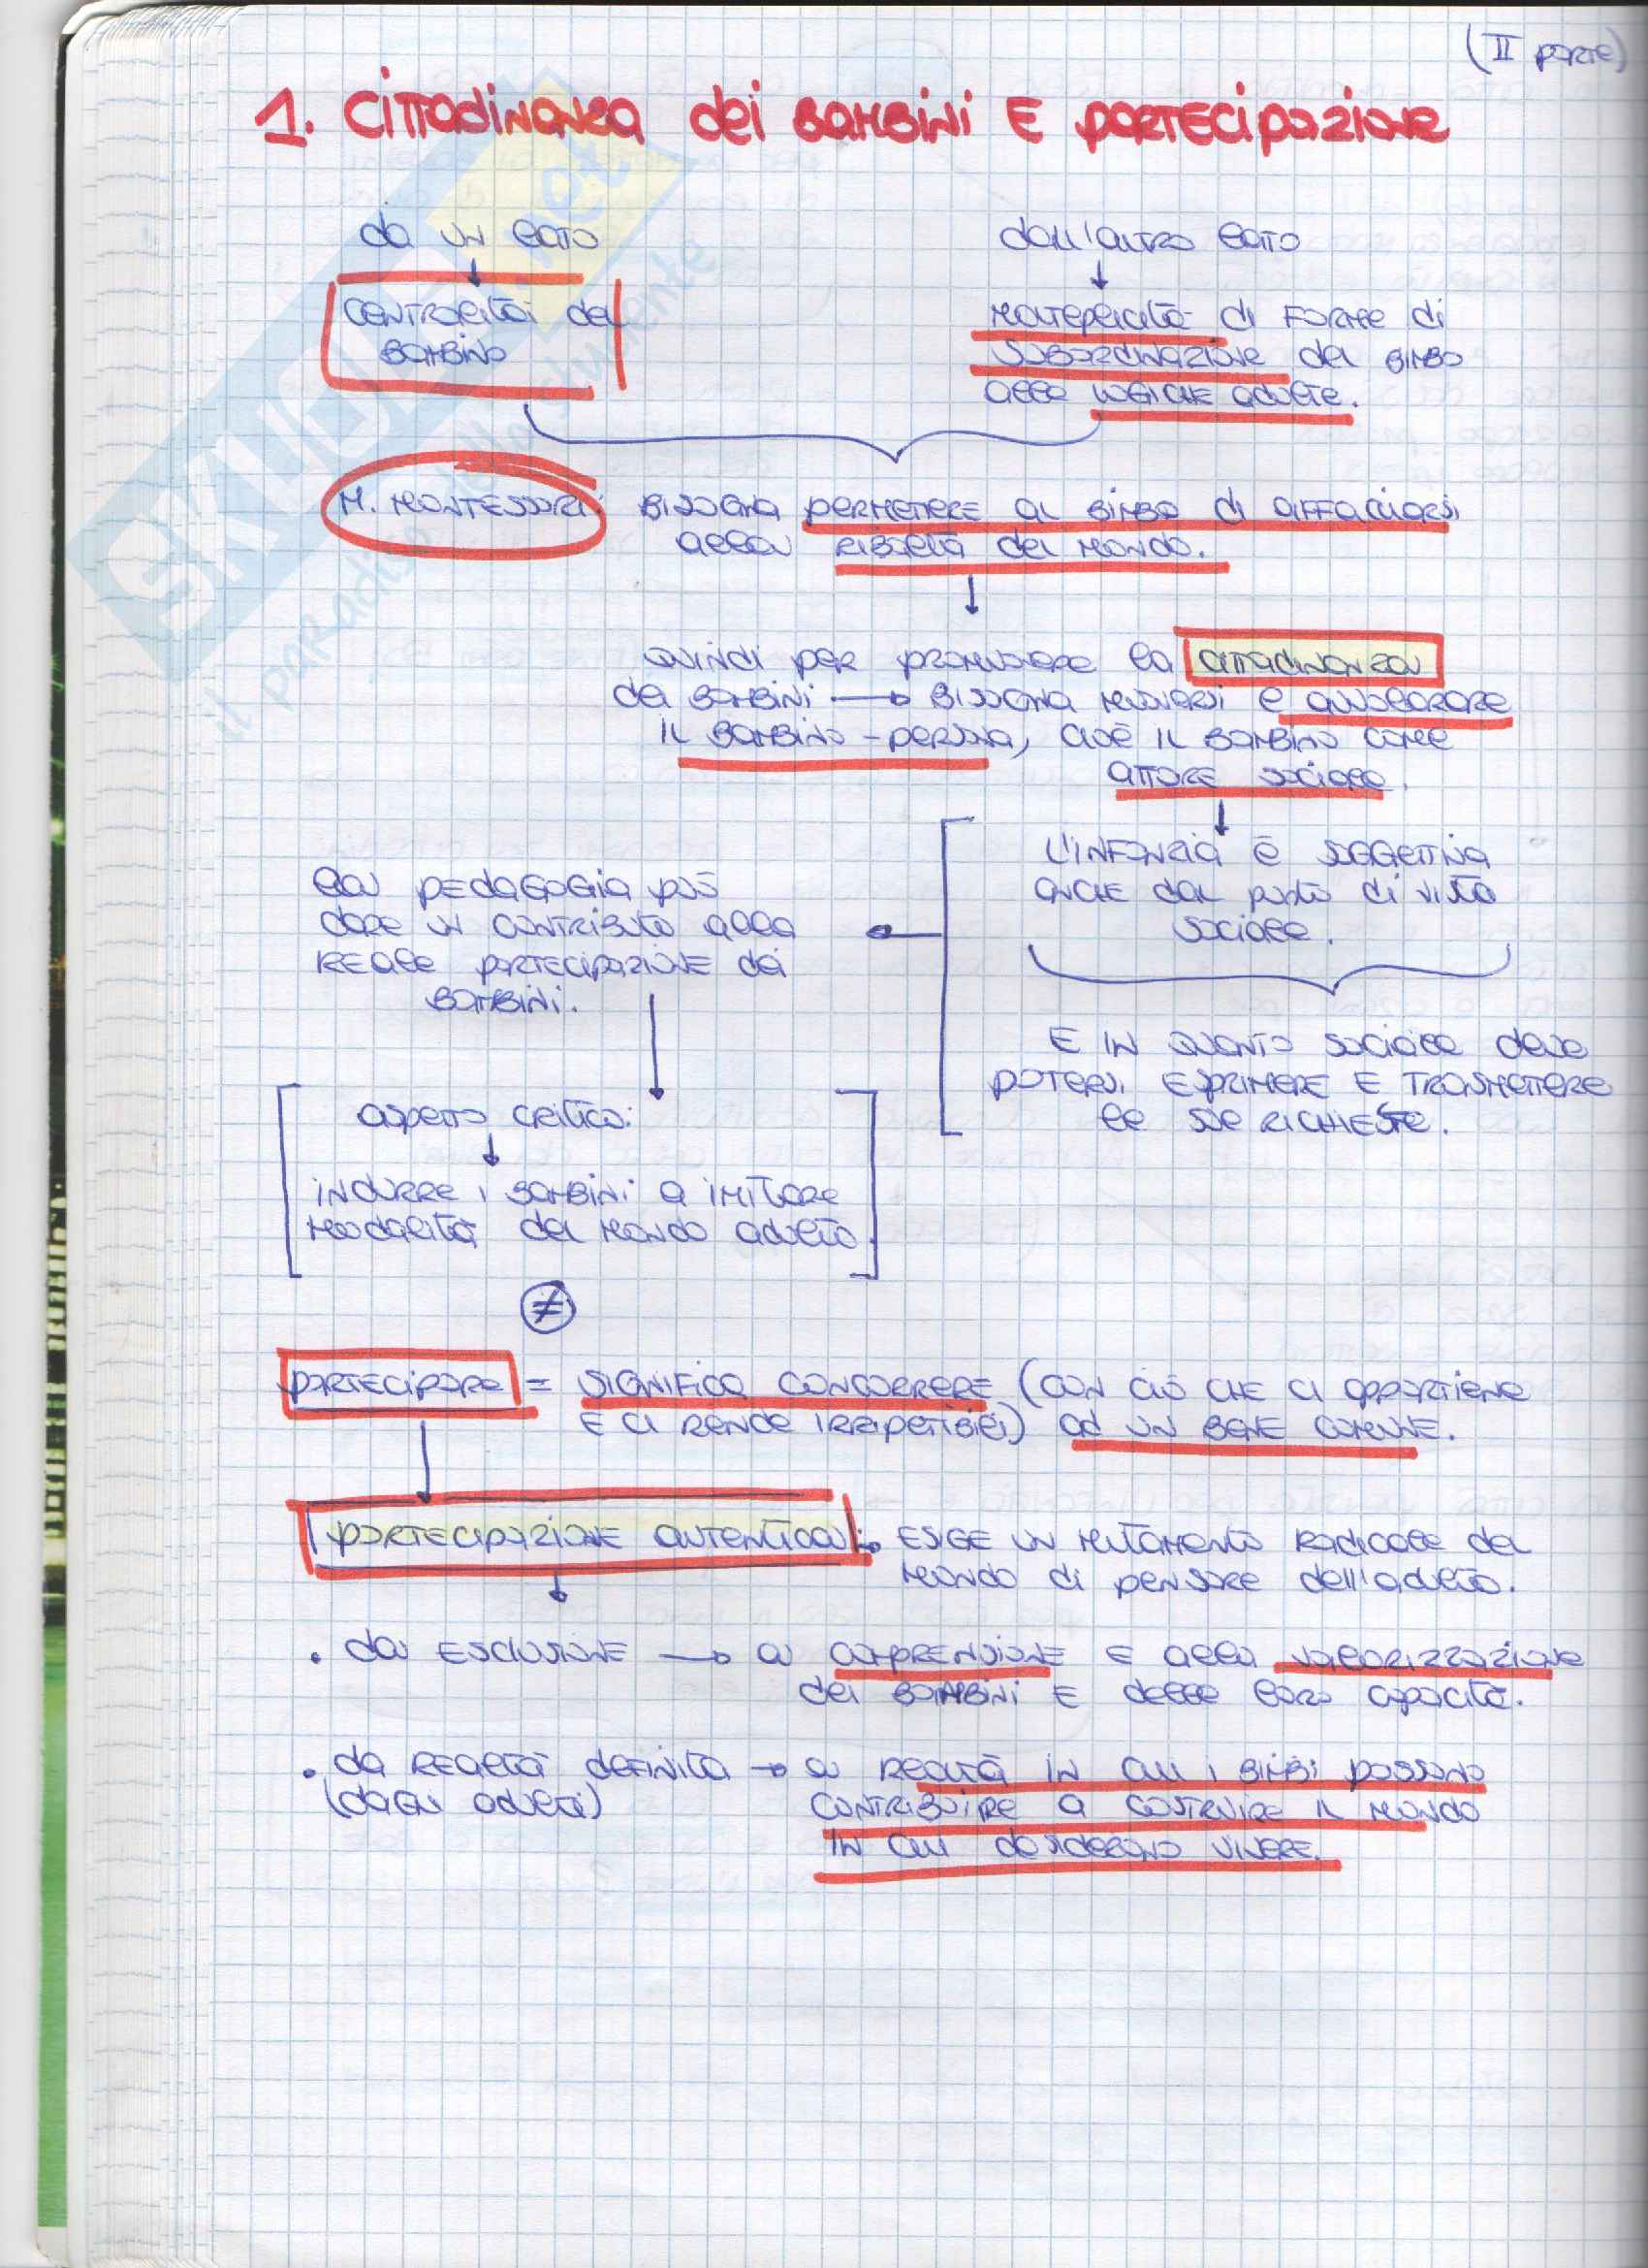 (II parte)
1. Cittadinanza dei bambini e partecipazione
da un lato
dall'altro lato
centralità del
bambino
molteplicità di forme di
subordinazione del bimbo
alle logiche adulte.
M. Montessori: bisogna permettere al bimbo di affacciarsi
alla ribalta del mondo.
quindi per promuovere la cittadinanza
dei bambini → bisogna muoversi e avvalorare
il bambino-persona, cioè il bambino come
attore sociale.
L'infanzia è soggettiva
anche dal punto di vista
sociale.
la pedagogia può
dare un contributo alla
reale partecipazione dei
bambini.
e in quanto sociale deve
potersi esprimere e trasmettere
le sue richieste.
aspetto critico:
indurre i bambini a imitare
modalità del mondo adulto.
≠
partecipare = significa concorrere (con ciò che ci appartiene
e ci rende irripetibili) ad un bene comune.
partecipazione autentica: esige un mutamento radicale del
mondo di pensare dell'adulto.
• da esclusione → a comprensione e alla valorizzazione
dei bambini e delle loro capacità.
• da realtà definita → a realtà in cui i bimbi possono
(dagli adulti) contribuire a costruire il mondo
in cui desiderano vivere.
SKUOLA.net
il paradiso dello studente